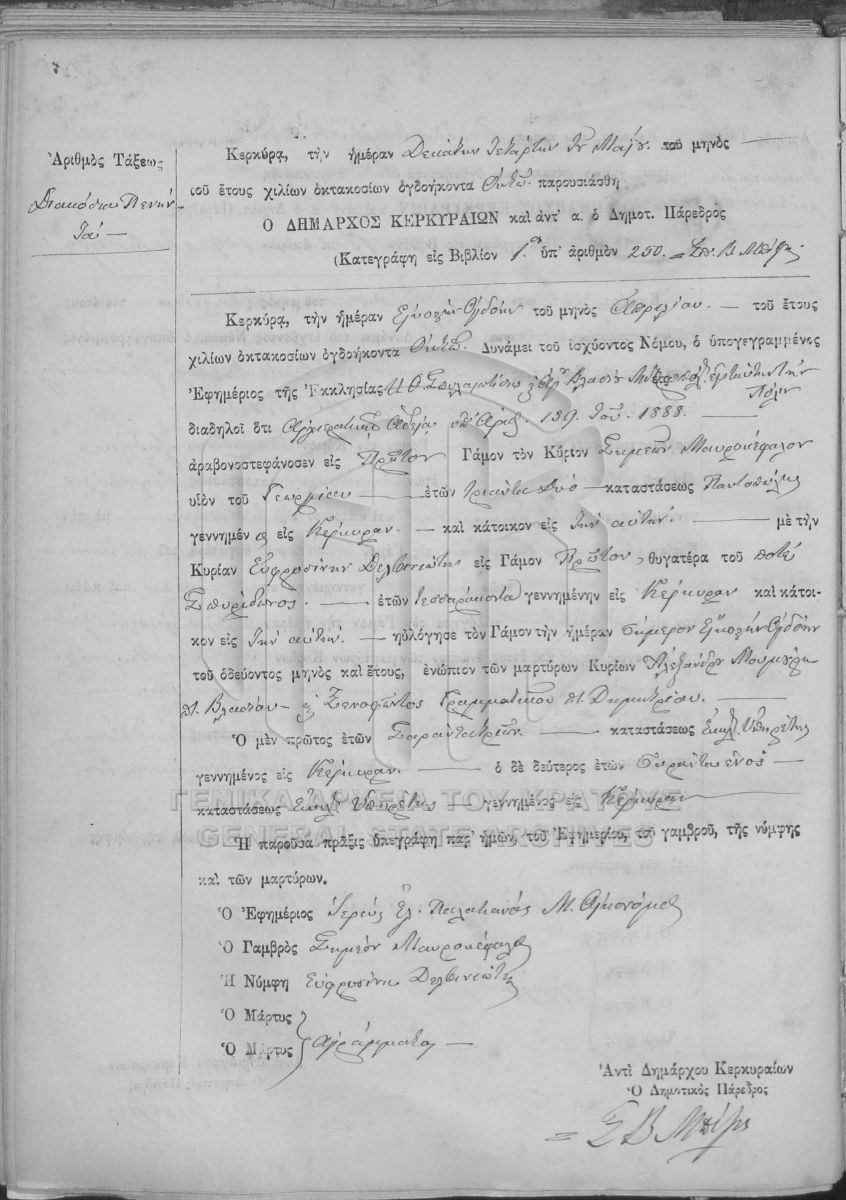 Ἀριθμὸς Τάξεως
Διακόσια Πενήν-
τα —
Κερκύρα, τὴν ἡμέραν Δεκάτην τετάρτην τοῦ Μαΐου τοῦ μηνὸς
τοῦ ἔτους χιλίων ὀκτακοσίων ὀγδοήκοντα Ὀκτὼ παρουσιάσθη
Ὁ ΔΗΜΑΡΧΟΣ ΚΕΡΚΥΡΑΙΩΝ καὶ ἀντ' α. ὁ Δημοτ. Πάρεδρος
(Κατεγράφη εἰς Βιβλίον 1.ον ὑπ' ἀριθμὸν 250.
Κερκύρα, τὴν ἡμέραν Εἰκοστὴν Ὀγδόην τοῦ μηνὸς Ἀπριλίου. — τοῦ ἔτους
χιλίων ὀκτακοσίων ὀγδοήκοντα Ὀκτὼ. Δυνάμει τοῦ ἰσχύοντος Νόμου, ὁ ὑπογεγραμμένος
Ἐφημέριος τῆς Ἐκκλησίας
Πόλιν
διαδηλοῖ ὅτι Ἀρχιερατικῇ Ἀδείᾳ ὑπ' Ἀριθ. 139. τοῦ 1888. —
ἀραβονοστεφάνοσεν εἰς Πρῶτον Γάμον τὸν Κύριον Συμεὼν Μαυροκέφαλον
υἱὸν τοῦ Γεωργίου — ἐτῶν τριάντα δυὸ — καταστάσεως Παντοπώλης
γεννημένον εἰς Κέρκυραν. — καὶ κάτοικον εἰς τὴν αὐτήν. — μὲ τὴν
Κυρίαν Εὐφροσίνην Δελβινιώτη εἰς Γάμον Πρῶτον, θυγατέρα τοῦ ποτὲ
Σπυρίδωνος. — ἐτῶν τεσσαράκοντα γεννημένην εἰς Κέρκυραν καὶ κάτοι-
κον εἰς τὴν αὐτήν. — ηὐλόγησε τὸν Γάμον τὴν ἡμέραν σήμερον Εἰκοστὴν Ὀγδόην
τοῦ ὁδεύοντος μηνὸς καὶ ἔτους, ἐνώπιον τῶν μαρτύρων Κυρίων Ἀλεξάνδρου
Ξενοφῶντος Γραμματικοῦ Δημητρίου. —
Ὁ μὲν πρῶτος ἐτῶν Σαραντατριῶν. — καταστάσεως Ἐκκλ. Ὑπηρέτης
γεννημένος εἰς Κέρκυραν. — ὁ δὲ δεύτερος ἐτῶν Σαράντα ἑνὸς —
καταστάσεως Ἐκκλ. Ὑπηρέτης — γεννημένος εἰς Κέρκυραν
ΓΕΝΙΚΑ ΑΡΧΕΙΑ ΤΟΥ ΚΡΑΤΟΥΣ
GENERAL STATE ARCHIVES
Ἡ παροῦσα πρᾶξις ὑπεγράφη παρ' ἡμῶν, τοῦ Ἐφημερίου, τοῦ γαμβροῦ, τῆς νύμφης
καὶ τῶν μαρτύρων.
Ὁ Ἐφημέριος Ἱερεύς
Ὁ Γαμβρὸς Συμεόν Μαυροκέφαλος
Ἡ Νύμφη Εὐφροσίνη Δελβινιώτη
Ὁ Μάρτυς
Ὁ Μάρτυς Ἀγράμματοι —
Ἀντὶ Δημάρχου Κερκυραίων
Ὁ Δημοτικὸς Πάρεδρος